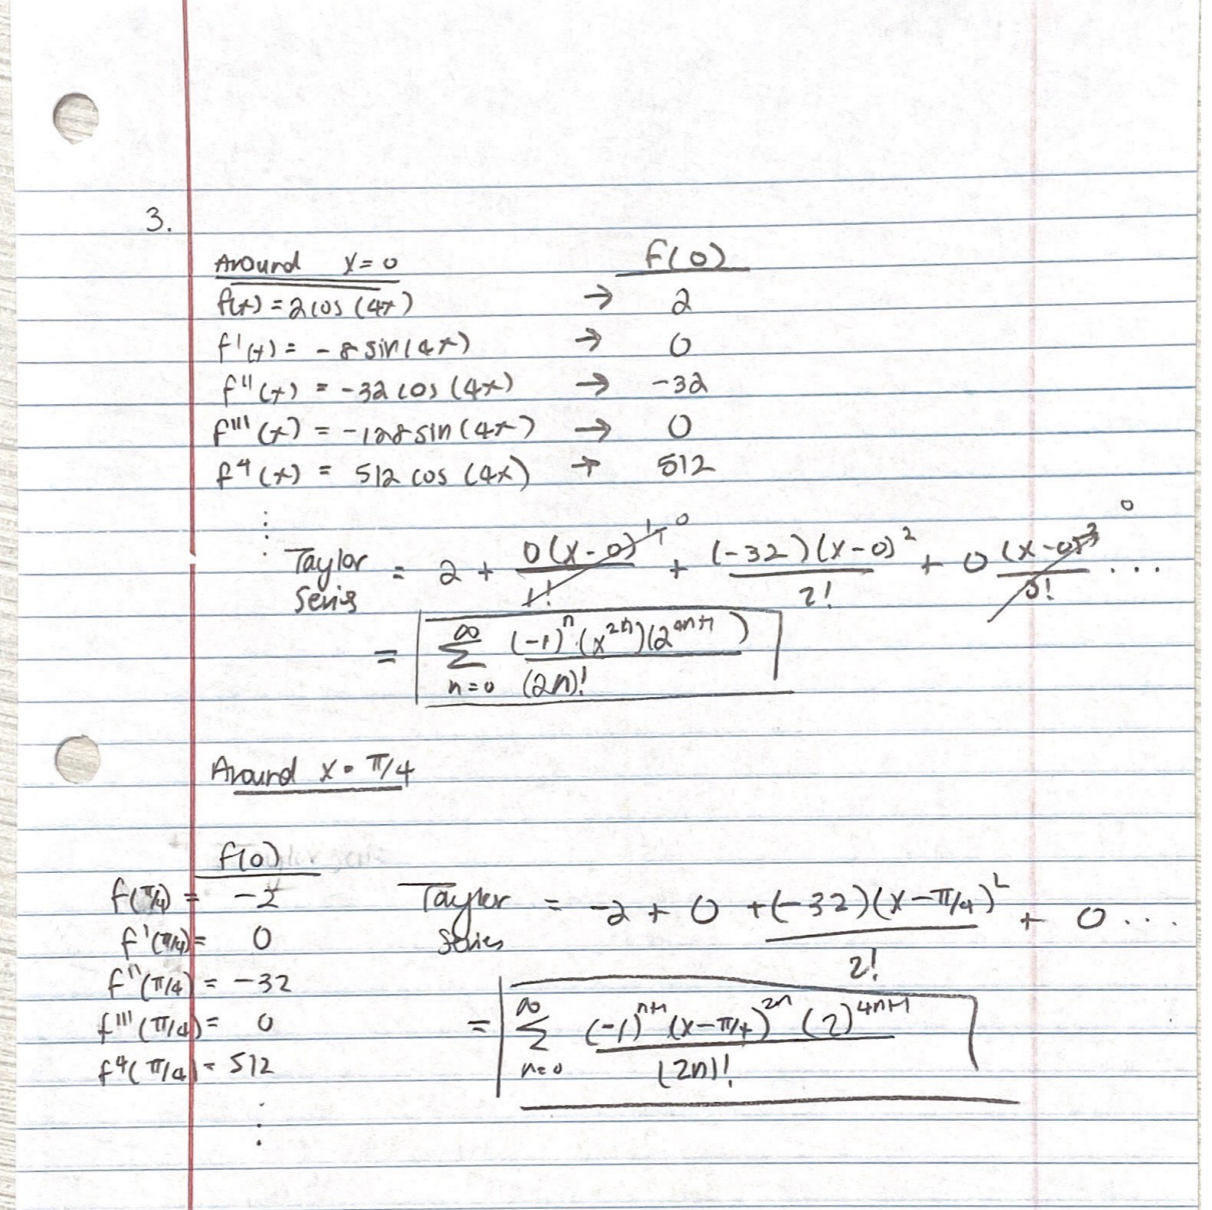 3.
Around x=0 f(0)
f(x) = 2cos(4x) → 2
f'(x) = -8sin(4x) → 0
f''(x) = -32cos(4x) → -32
f'''(x) = -128sin(4x) → 0
f⁴(x) = 512 cos(4x) → 512
⋮
Taylor Series = 2 + 0(x-0)¹/1! ⁰ + (-32)(x-0)²/2! + 0(x-0)³/3! ⁰ ...
= ∑_{n=0}^{∞} (-1)ⁿ(x²ⁿ)(2⁴ⁿ⁺¹)/(2n)!
Around x = π/4
f(0)
f(π/4) = -2
f'(π/4) = 0
f''(π/4) = -32
f'''(π/4) = 0
f⁴(π/4) = 512
⋮
Taylor Series = -2 + 0 + (-32)(x-π/4)²/2! + 0 ...
= ∑_{n=0}^{∞} (-1)ⁿ⁺¹(x-π/4)²ⁿ(2)⁴ⁿ⁺¹/(2n)!